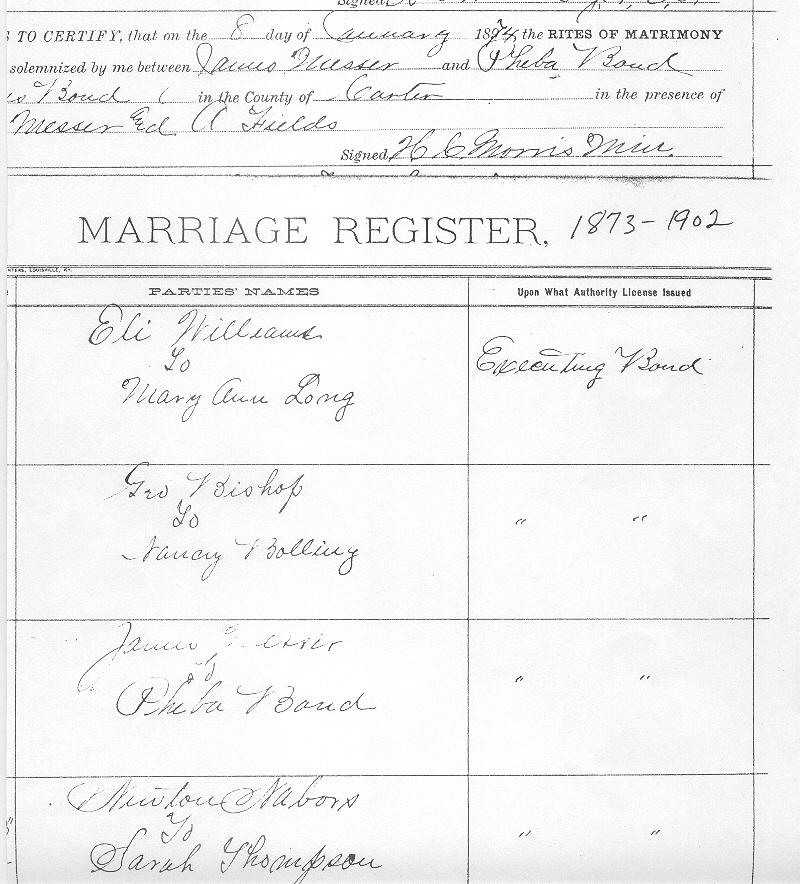 Signed
TO CERTIFY, that on the 8 day of January 1874, the RITES OF MATRIMONY
solemnized by me between James Messer and Pheba Bond
Bond in the County of Carter in the presence of
Messer Ed A Fields
Signed, H C Morris Min.
MARRIAGE REGISTER, 1873-1902
NTERS, LOUISVILLE, KY.
PARTIES' NAMES Upon What Authority License Issued
Eli Williams
To
Mary Ann Long
Executing Bond
Geo Bishop
To
Nancy Bolling
" "
James Messer
To
Pheba Bond
" "
Newton Nabors
To
Sarah Thompson
" "